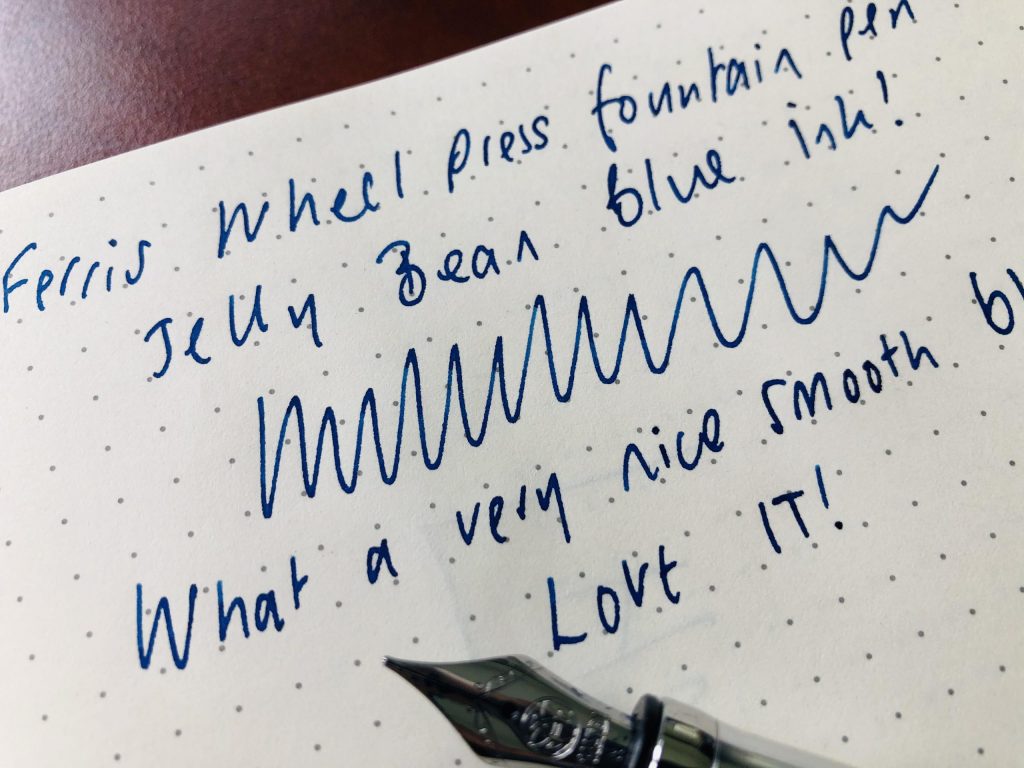 Ferris Wheel Press fountain pen
Jelly Bean blue ink!
What a very nice smooth
Love IT!